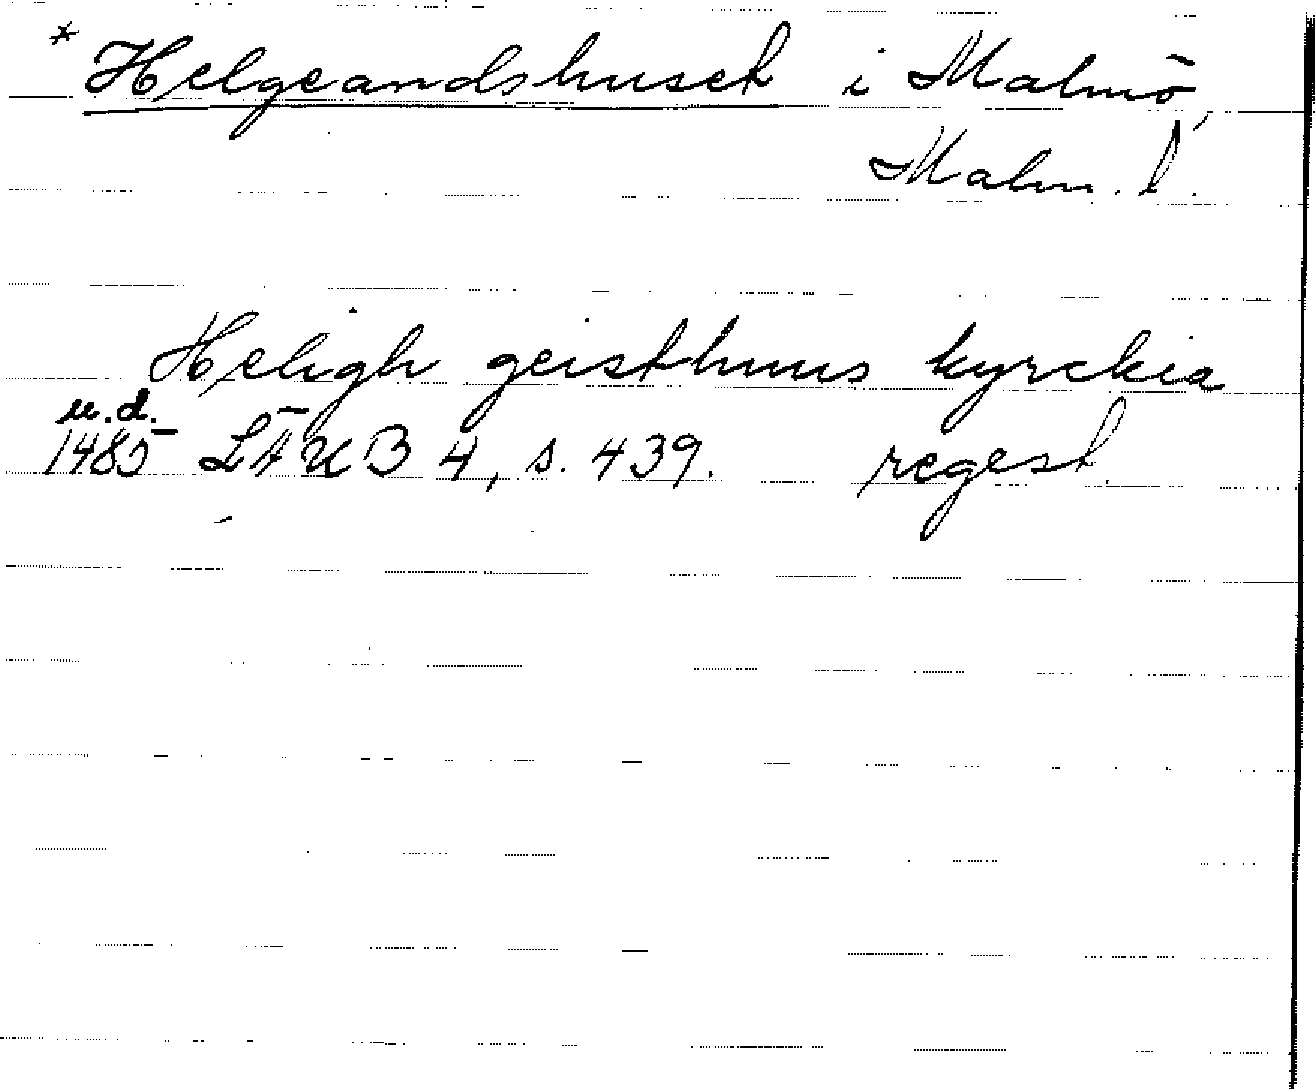 * Helgeandshuset i Malmö,
Malm. l.
Heligh geisthuus kyrckia
u.d.
1485 LÄUB 4, s. 439. regest